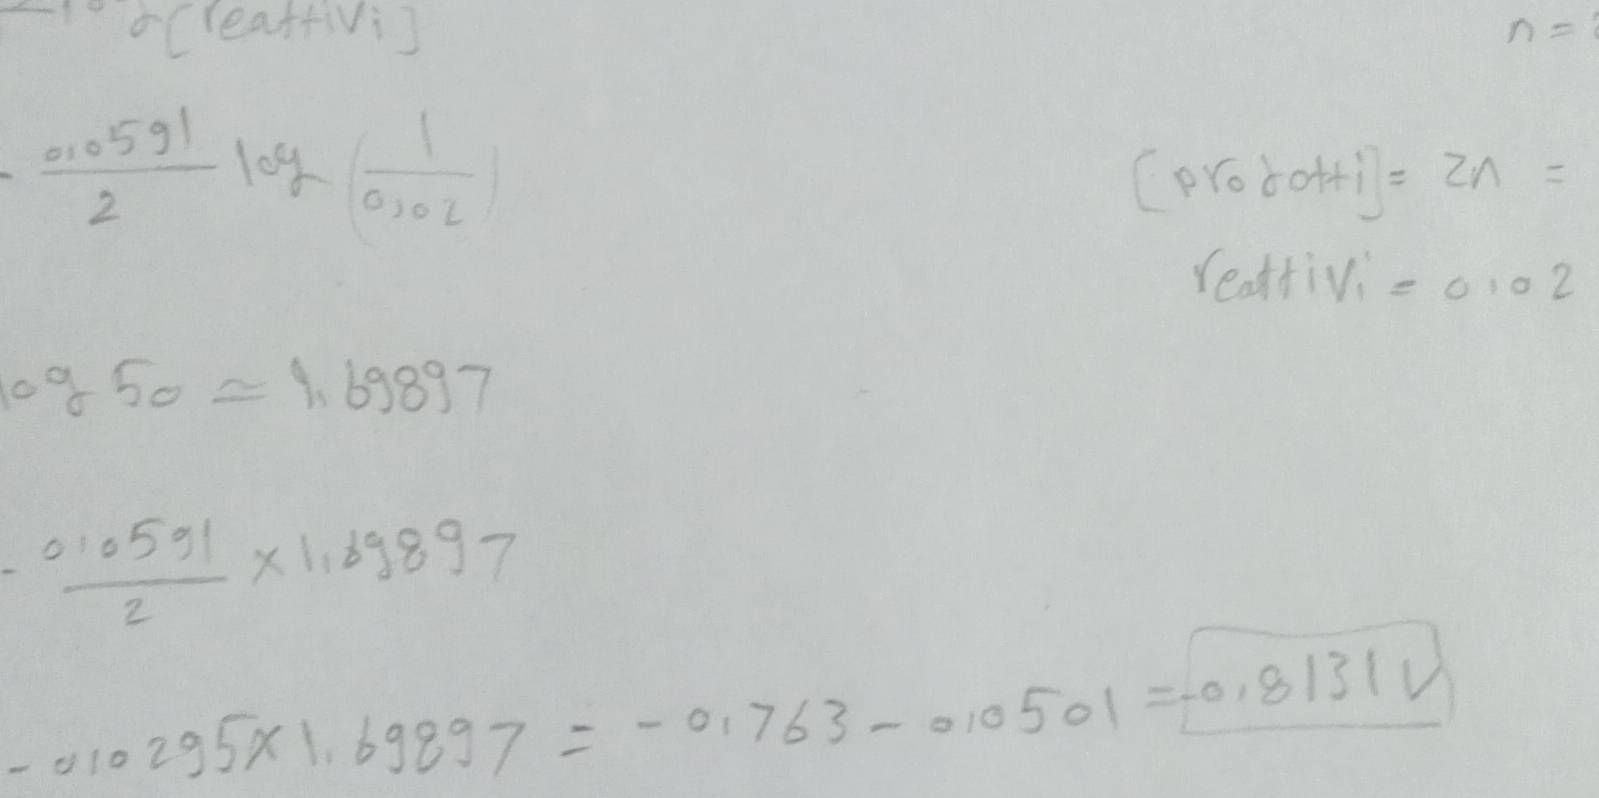 [reattivi]
n =
- 0,0591/2 log (1/0,02)
[prodotti] = Zn =
reattivi = 0,02
log 50 ≃ 1,69897
- 0,0591/2 × 1,69897
- 0,0295 × 1,69897 = -0,763 - 0,0501 = -0,8131 V